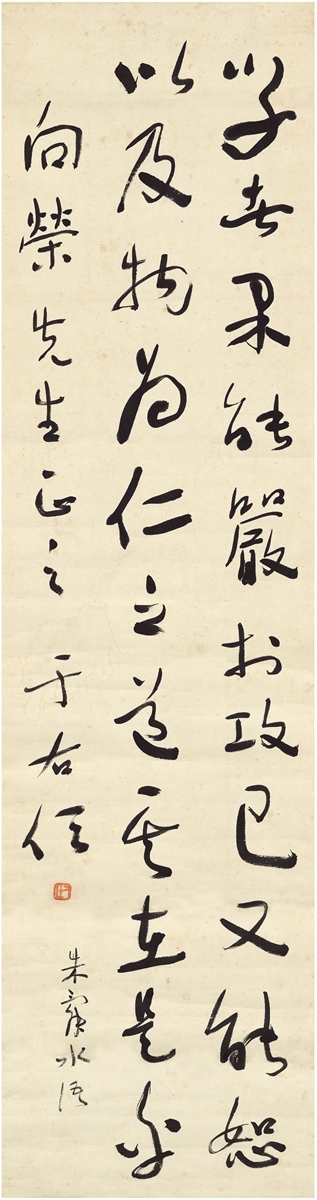 學者果能嚴於攻己又能恕
以及物為仁之道其在是乎
向榮先生正之 于右任
朱舜水語